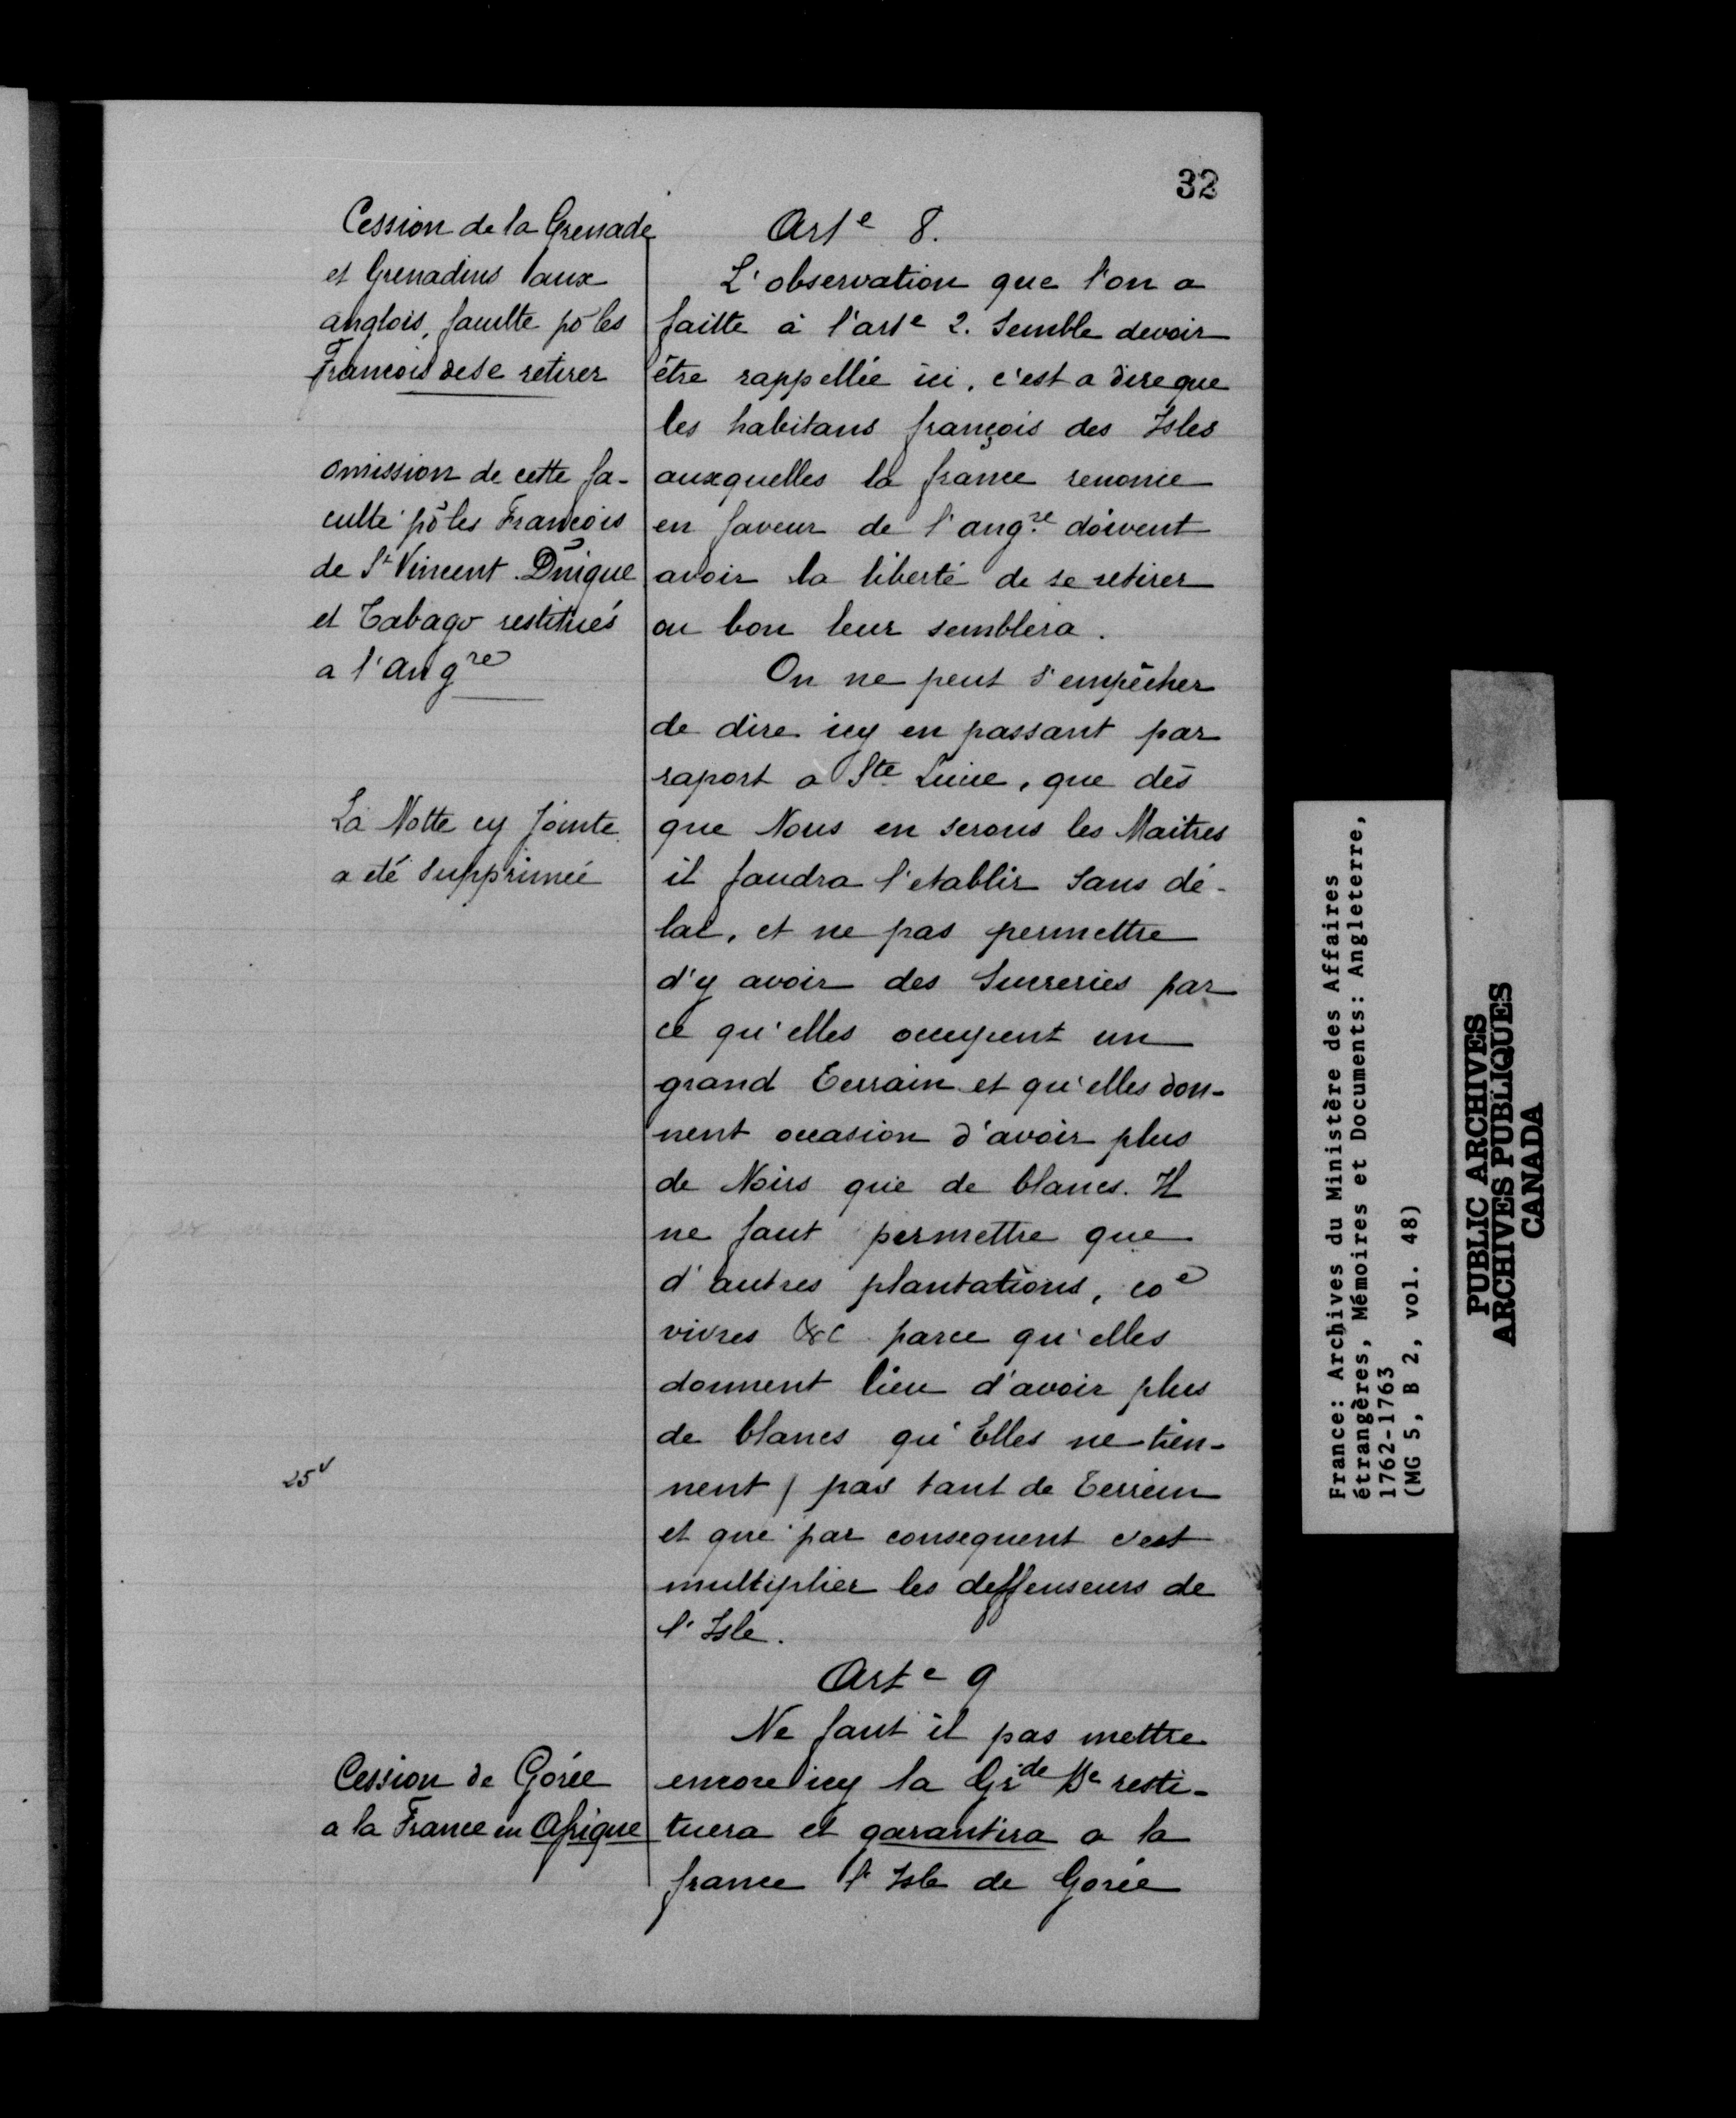 32
Cession de la Grenade
et Grenadins aux
anglois, faculte pō les
Francois de se retirer
omission de cette fa-
culté pō les Francois
de St Vincent Dnique
et Tabago restitués
a l'Angre
La Notte cy jointe
a eté supprimée
25v
Cession de Gorée
a la France en Afrique
Arte 8.
L'observation que l'on a
faitte à l'arte 2. Semble devoir
être rappellée ici, c'est a dire que
les habitans françois des Isles
auxquelles la france renonce
en faveur de l'angre doivent
avoir la liberté de se retirer
ou bon leur semblera.
On ne peut s'empêcher
de dire icy en passant par
raport a Ste Lucie, que dès
que Nous en serons les Maitres
il faudra l'etablir Sans dé-
lai, et ne pas permettre
d'y avoir des Sucreries par
ce qu'elles occupent un
grand Terrain et qu'elles don-
nent occasion d'avoir plus
de Noirs que de blancs. Il
ne faut permettre que
d'autres plantations, coe
vivres &c parce qu'elles
donnent lieu d'avoir plus
de blancs qu'Elles ne tien-
nent / pas tant de Terrein
et que par consequent c'est
multiplier les deffenseurs de
l'Isle.
Arte 9
Ne faut il pas mettre
encore icy la Grde Be resti-
tuera et garantira a la
france l'Isle de Gorée
France: Archives du Ministère des Affaires
étrangères, Mémoires et Documents: Angleterre,
1762-1763
(MG 5, B 2, vol. 48)
PUBLIC ARCHIVES
ARCHIVES PUBLIQUES
CANADA